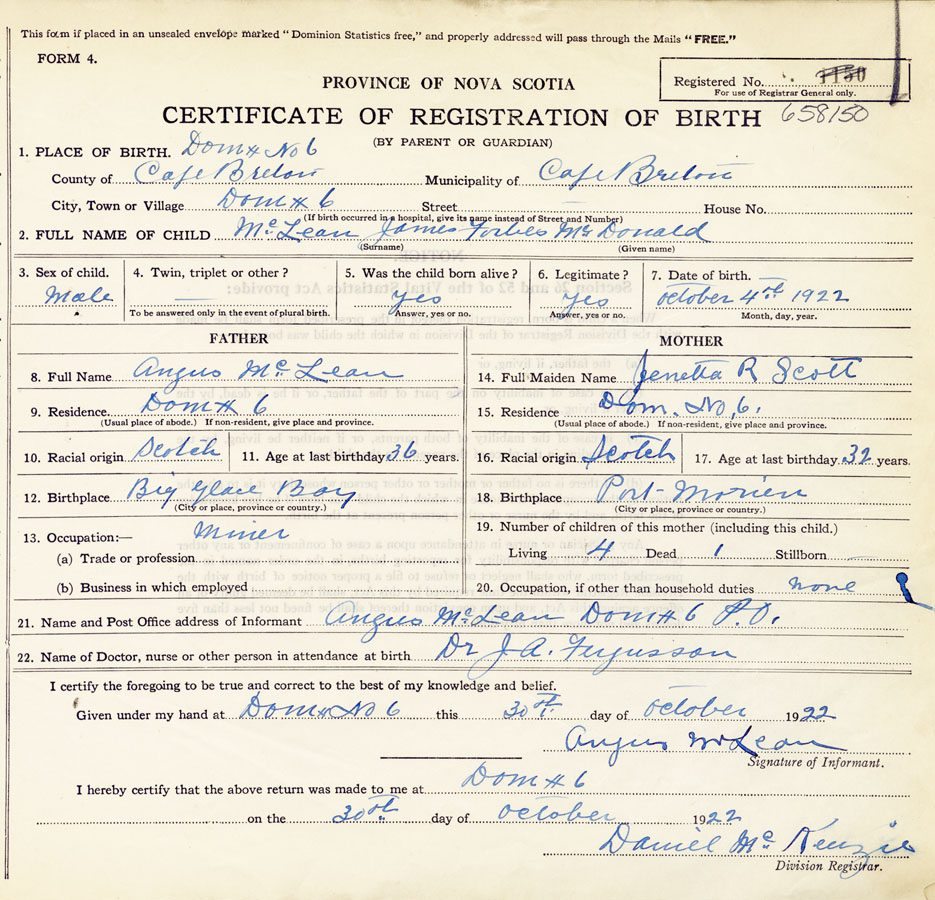 This form if placed in an unsealed envelope marked "Dominion Statistics free," and properly addressed will pass through the Mails "FREE."
FORM 4.
Registered No. 1150
For use of Registrar General only.
PROVINCE OF NOVA SCOTIA
CERTIFICATE OF REGISTRATION OF BIRTH 658150
(BY PARENT OR GUARDIAN)
1. PLACE OF BIRTH. Dom # No 6
County of Cape Breton Municipality of Cape Breton
City, Town or Village Dom # 6 Street — House No.
(If birth occurred in a hospital, give its name instead of Street and Number)
2. FULL NAME OF CHILD McLean James Forbes McDonald
(Surname) (Given name)
3. Sex of child. 4. Twin, triplet or other? 5. Was the child born alive? 6. Legitimate? 7. Date of birth. —
Male — yes Yes October 4th 1922
To be answered only in the event of plural birth. Answer, yes or no. Answer, yes or no. Month, day, year.
FATHER MOTHER
8. Full Name Angus McLean 14. Full Maiden Name Jenetta R Scott
9. Residence Dom # 6 15. Residence Dom. No, 6.
(Usual place of abode.) If non-resident, give place and province. (Usual place of abode.) If non-resident, give place and province.
10. Racial origin Scotch 11. Age at last birthday 36 years. 16. Racial origin Scotch 17. Age at last birthday 32 years.
12. Birthplace Big Glace Bay 18. Birthplace Port-Morien
(City or place, province or country.) (City or place, province or country.)
13. Occupation:— Miner 19. Number of children of this mother (including this child.)
(a) Trade or profession Living 4 Dead 1 Stillborn
(b) Business in which employed 20. Occupation, if other than household duties none
21. Name and Post Office address of Informant Angus McLean Dom # 6 P.O.
22. Name of Doctor, nurse or other person in attendance at birth Dr J. A. Fergusson
I certify the foregoing to be true and correct to the best of my knowledge and belief.
Given under my hand at Dom # No 6 this 30th day of October 1922
Angus McLean
Signature of Informant.
I hereby certify that the above return was made to me at Dom # 6
on the 30th day of October 1922
Daniel McKenzie
Division Registrar.